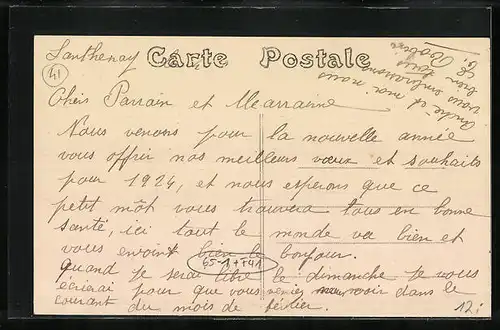 Santhenay
Carte Postale
41
Chers Parrain et Marraine
Nous venons pour la nouvelle année
vous offrir nos meilleurs vœux et souhaits
pour 1924, et nous esperons que ce
petit môt vous trouvera tous en bonne
santé, ici tout le monde va bien et
vous envoint bien le bonjour.
65-1++T41
quand je serai libre le dimanche je vous
écrirai pour que vous veniez nous voir dans le
courant du mois de février.
12;
André et moi nous
vous embrassons
bien tous